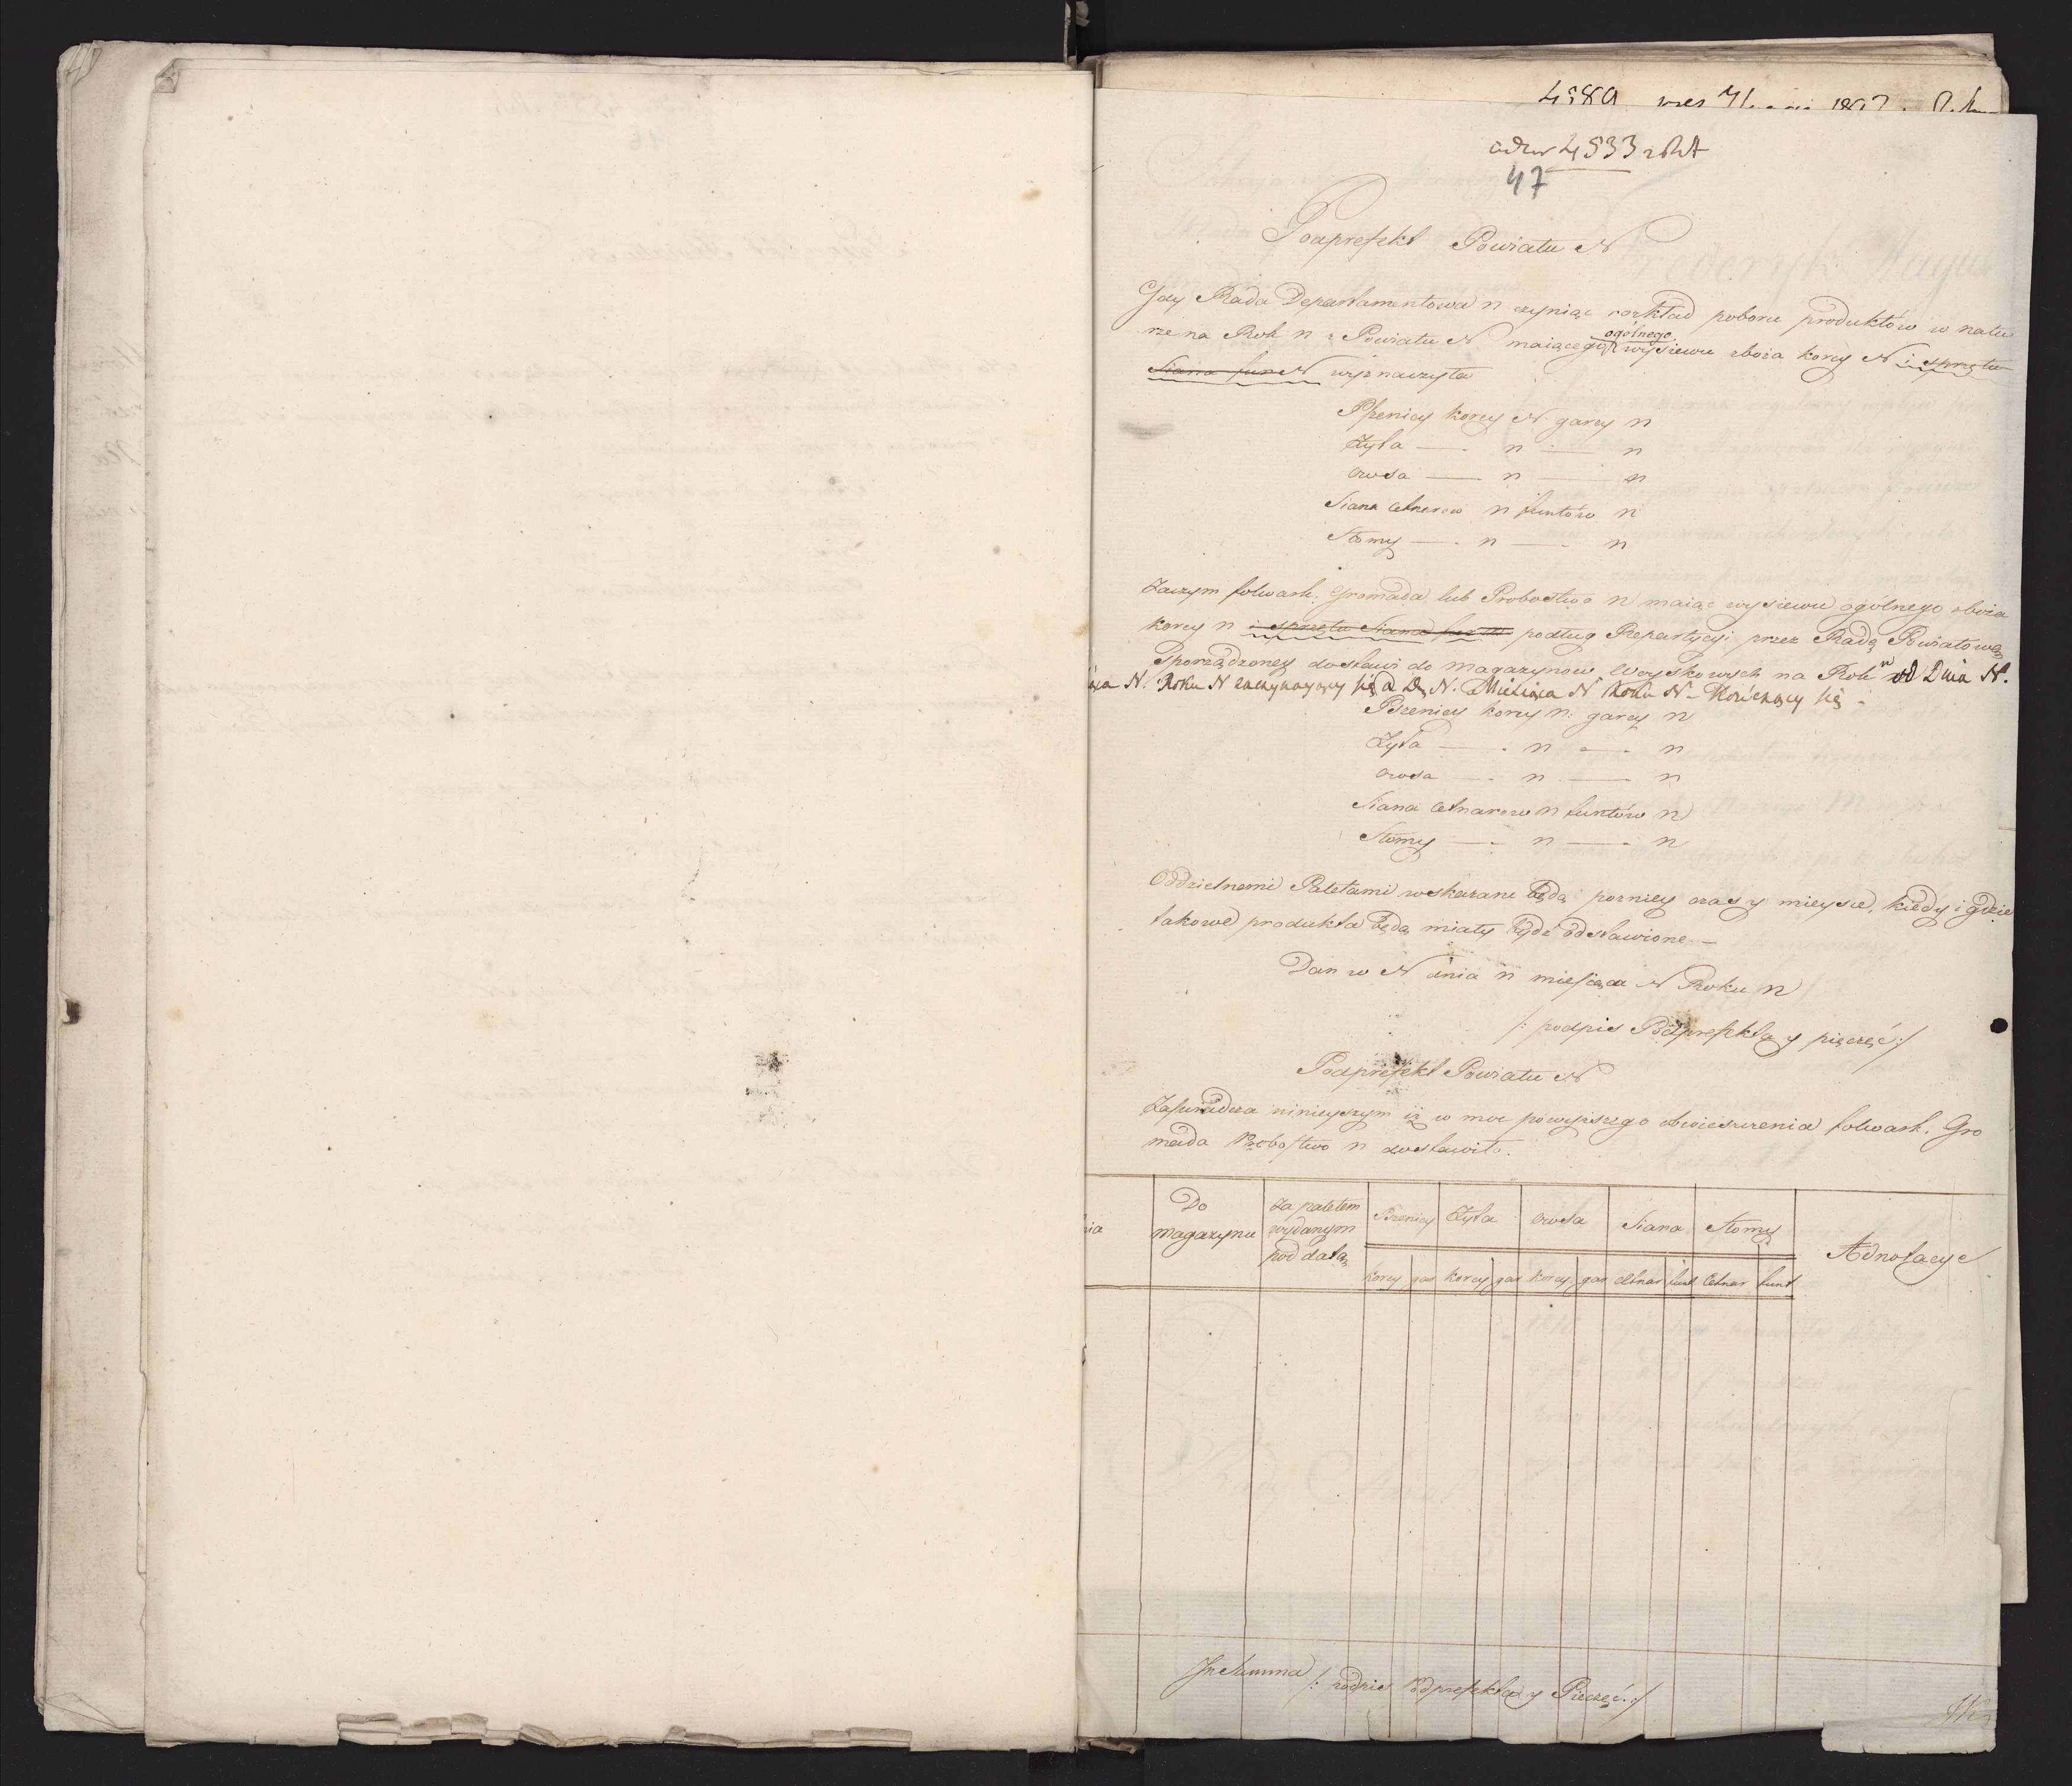 47
Podprefekt Powiatu N
Gdy Rada Departamentowa n czyniąc rozkład poboru produktów w natu
rze na Rok n z Powiatu N maiącego ogólnego wysiewu zboża korcy N i sprzętu
Siana fun N wyznaczyła
Pszenicy korcy N garcy n
Żyta — n — n
owsa — n — n
Siana Cetnarow n funtów n
Słomy — n — n
Zaczym folwark, Gromada lub Probostwo n maiąc wysiewu ogólnego zboża
korcy n i sprzętu Siana podług Repartycyi przez Radę Powiatową
Sporządzoney dostawi do magazynow Woyskowych na Rok n od Dnia N.
N. Roku N zaczynaiący się a D. N. Miesiąca N Roku N. Kończący się -
Pszenicy korcy n: garcy n
Żyta — n — n
owsa — n — n
Siana Cetnarow n funtów n
Słomy — n — n
Oddzielnemi Paletami wskazane będą pozniey czas y mieysce, kiedy i gdzie
takowe produkta będą miały bydź odstawione. —
Dan w N dnia n miesiąca N Roku n
/: podpis Podprefekta y pięczęć :/
Podprefekt Powiatu N
Zaświadcza ninieyszym iż w moc powyższego obwieszczenia folwark, Gro
mada Probostwo n dostawiło.
Do magazynu
Za paletem wydanym pod datą
Pszenicy Żyta owsa Siana Słomy
Adnotacye
korcy gar korcy gar korcy gar cetnar funt Cetnar funt
In Summa
/: podpis Podprefekta y Pieczęć :/